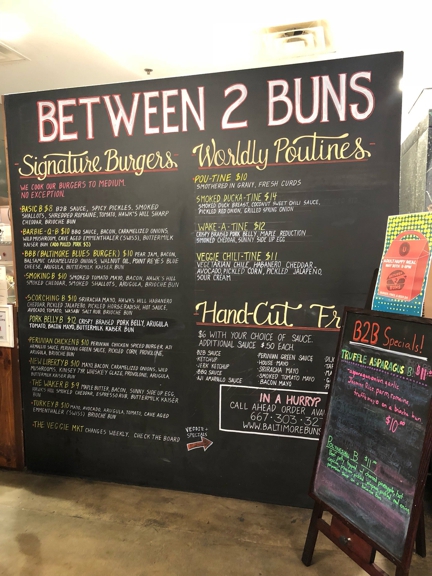 BETWEEN 2 BUNS
Signature Burgers
WE COOK OUR BURGERS TO MEDIUM.
NO EXCEPTION.
-BASIC B $8 B2B SAUCE, SPICY PICKLES, SMOKED
SHALLOTS, SHREDDED ROMAINE, TOMATO, HAWK'S HILL SHARP
CHEDDAR, BRIOCHE BUN
-BARBIE-Q-B $10 BBQ SAUCE, BACON, CARAMELIZED ONIONS,
WILD MUSHROOM, CAVE AGED EMMENTHALER (SWISS), BUTTERMILK
KAISER BUN (ADD PULLED PORK $3)
-BBB (BALTIMORE BLUE'S BURGER) $10 PEAR JAM, BACON,
BALSAMIC CARAMELIZED ONIONS, WALNUT OIL, POINT REYES BLUE
CHEESE, ARUGULA, BUTTERMILK KAISER BUN
-SMOKING B $10 SMOKED TOMATO MAYO, BACON, HAWK'S HILL
SMOKED CHEDDAR, SMOKED SHALLOTS, ARUGULA, BRIOCHE BUN
-SCORCHING B $10 SRIRACHA MAYO, HAWK'S HILL HABANERO
CHEDDAR, PICKLED JALAPENO, PICKLED HORSERADISH, HOT SAUCE,
AVOCADO, TOMATO, BRIOCHE BUN
PORK BELLY B $12 CRISPY BRAISED PORK BELLY, ARUGULA
TOMATO, BACON MAYO, BUTTERMILK KAISER BUN
-PERUVIAN CHICKEN B $10 PERUVIAN CHICKEN SPEED BURGER, AJI
AMARILLO, PERUVIAN GREEN SAUCE, PICKLED CORN, PROVOLONE,
ARUGULA, BRIOCHE BUN
-NEW LIBERTY B $10 MAYO, BACON, CARAMELIZED ONIONS, WILD
MUSHROOMS, KINSEY 7 YR WHISKEY GLAZE, PROVOLONE, ARUGULA,
BRIOCHE BUN
-THE WAKER B $9 MAPLE BUTTER, BACON, SUNNY SIDE EGG,
HAWK'S HILL SMOKED CHEDDAR, ESPRESSO RUB, BUTTERMILK KAISER
BUN
-TURKEY B $10 MAYO, AVOCADO, ARUGULA, TOMATO, CAVE AGED
EMMENTHALER (SWISS), BRIOCHE BUN
-THE VEGGIE MKT CHANGES WEEKLY, CHECK THE BOARD
Worldly Poutines
-POU-TINE $10
SMOTHERED IN GRAVY, FRESH CURDS
SMOKED DUCKA-TINE $14
SMOKED DUCK BREAST, COCONUT SWEET CHILI SAUCE,
PICKLED RED ONION, GRILLED SPRING ONION
-WAKE-A-TINE $12
CRISPY BRAISED PORK BELLY, MAPLE REDUCTION
SMOKED CHEDDAR, SUNNY SIDE UP EGG
VEGGIE CHILI-TINE $11
VEGETARIAN CHILI, HABANERO CHEDDAR,
AVOCADO, PICKLED CORN, PICKLED JALAPENO,
SOUR CREAM
Hand-Cut Fr
$6 WITH YOUR CHOICE OF SAUCE.
ADDITIONAL SAUCE $.50 EACH
B2B SAUCE
KETCHUP
JERK KETCHUP
BBQ SAUCE
AJI AMARILLO SAUCE
PERUVIAN GREEN SAUCE
HOUSE MAYO
-SRIRACHA MAYO
-SMOKED TOMATO MAYO
BACON MAYO
IN A HURRY?
CALL
AHEAD ORDER AVA
667-303-32
WWW.BALTIMOREBUNS
VEGGIE +
SPECIALS
B2B Specials!
TRUFFLE ASPARAGUS B $11
$10